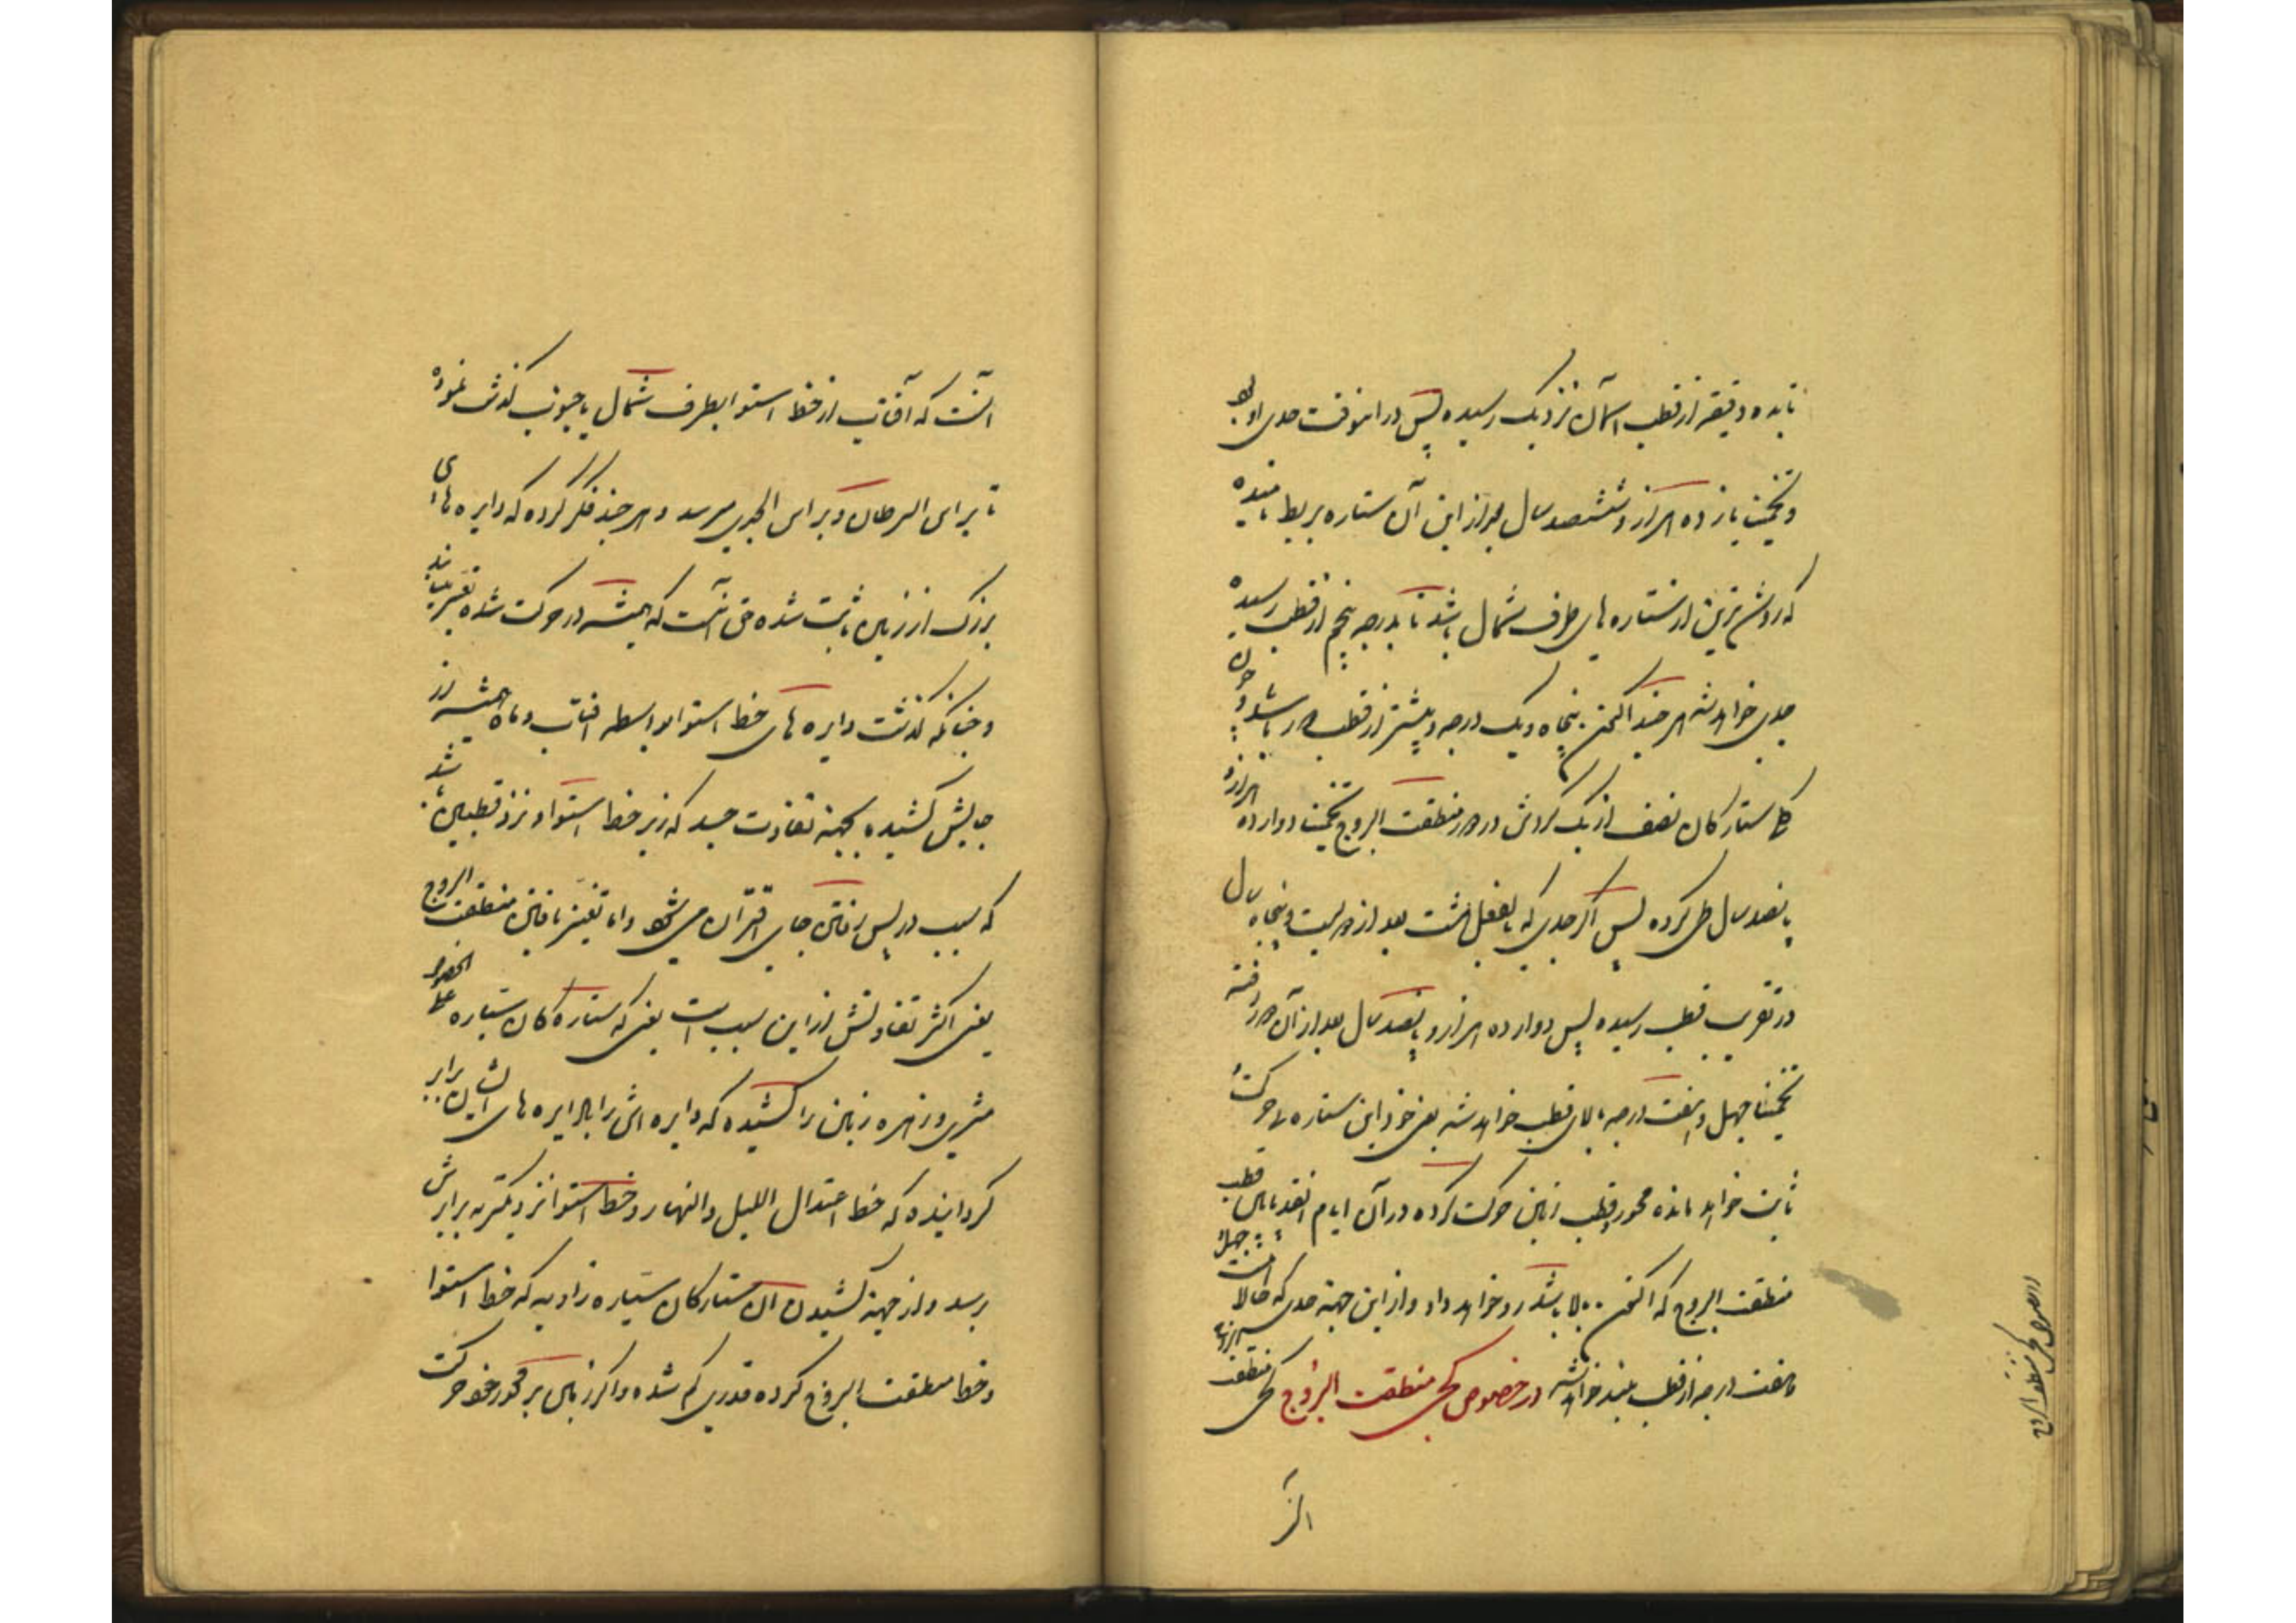 تا به ده دقیقه از قطب آسمان نزدیک رسیده پس در انوقت جدی او بود
و تخمینا یازده هزار و ششصد سال بعد از این آن ستاره بربط نامیده
که روشن ترین از ستاره های طرف شمال باشد تا بدرجه پنجم از قطب رسیده
جدی خواهد شد هر چند اکنون پنجاه و یک درجه و بیشتر از قطب دور باشد و چون
کل ستارکان نصف از یک کردش در دور منطقت البروج تخمینا دوازده هزار و
پانصد سال طی کرده پس اکر جدی که بالفعل هست بعد از دویست و پنجاه سال
در تقریب قطب رسیده پس دوازده هزار و پانصد سال بعد از آن دور رفته
تخمینا چهل و هفت درجه بالای قطب خواهد شد یعنی خود این ستاره بی حرکت
ثابت خواهد مانده محور و قطب زمین حرکت کرده در آن ایام انقدر پایین قطب
منطقت البروج که اکنون بالا باشد رو خواهد داد و از این جهة جدی که حالا است چهل
و هفت درجه از قطب بلند خواهد شد در خصوص کجی منطقت البروج کجی منطقت
آنست که آفتاب از خط استوا بطرف شمال یا جنوب کذشت نموده
تا براس السرطان و براس الجدی میرسد و هر چند فکر کرده که دایره های
بزرک از زمین ثابت شده حق آنست که همیشه در حرکت شده تغییر یابند
و چنانکه کذشت دایره های خط استوا بواسطه افتاب و ماه همیشه از
جایش کشیده بجهة تفاوت جسد که زیر خط استوا و نزد قطبین باشد
که سبب در پس رفتن جای اقتران می شود و اما تغییر یافتن منطقت البروج
یعنی اکثر تفاوتش از این سبب است یعنی که ستاره کان سیاره علی الخصوص
مشتری و زهره زمین را کشیده که دایره اش را با دایره های ایشان برابر
کردانیده که خط اعتدال اللیل والنهار و خط استوا نزدیکتر به برابرش
برسد و از جهة کشیدن آن ستارکان سیاره زاویه که خط استوا
و خط منطقت البروج کرده قدری کم شده و اکر زمین بر محور خود حرکت